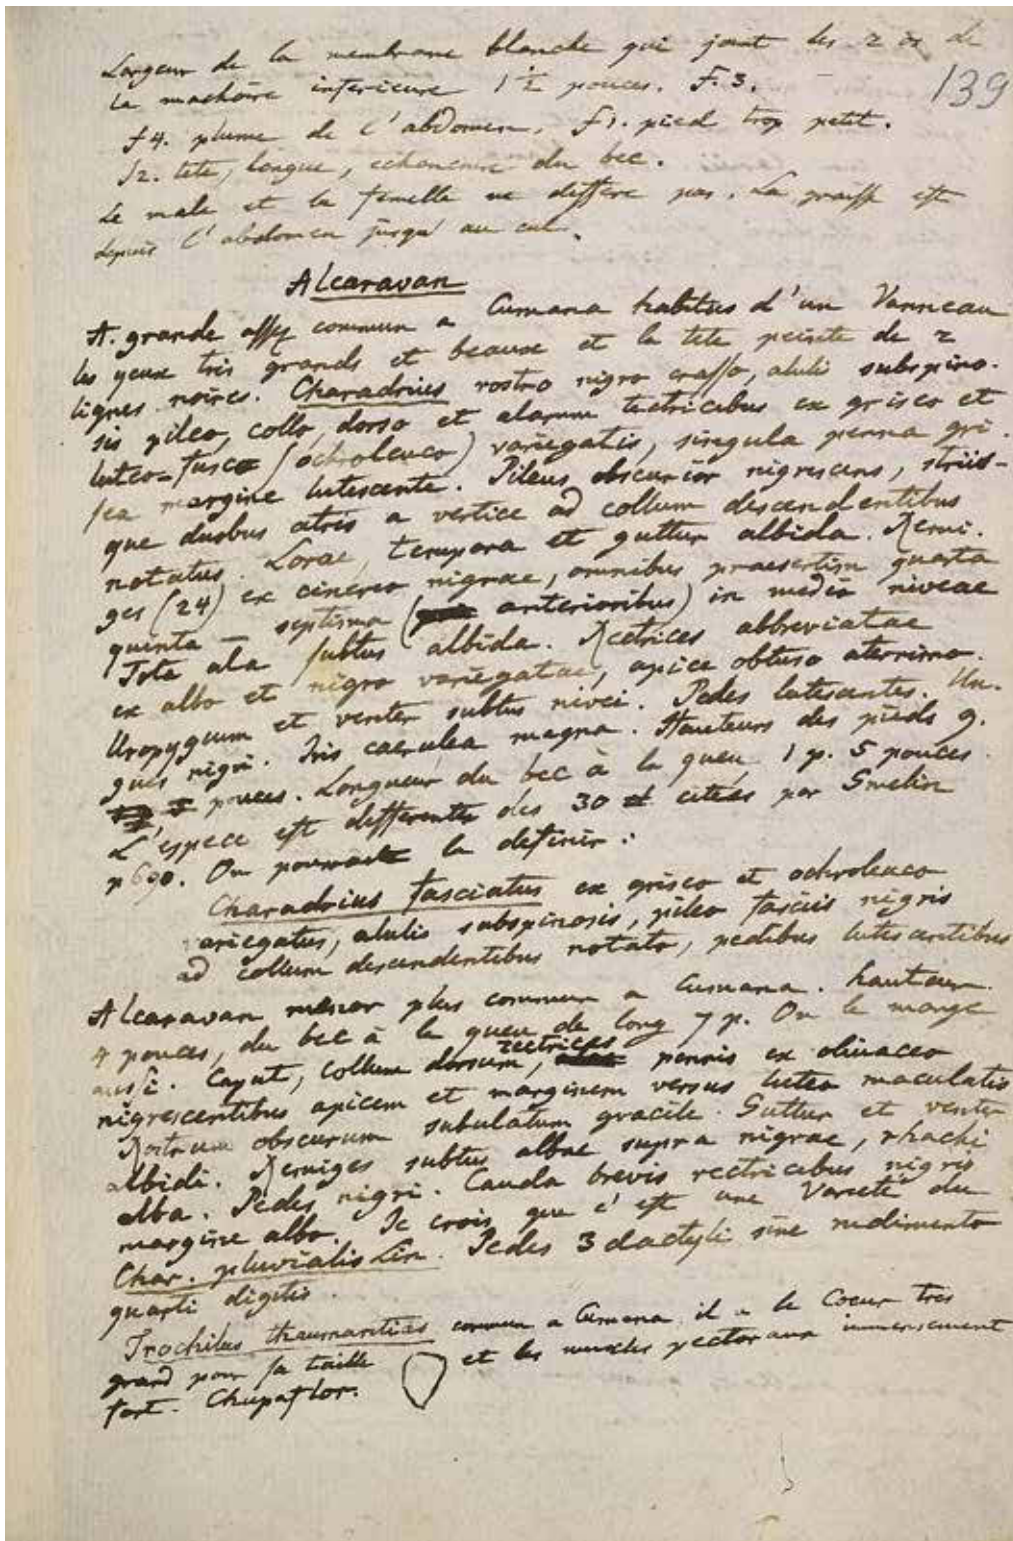 Largeur de la membrane blanche qui joint les 2 os de
la machoire inferieure 1 1/2 pouces. F. 3.
139
f 4. plume de l'abdomen. f 1. pied trop petit.
f 2. tete, langue, echancrure du bec.
Le male et la femelle ne differe pas. La graisse est
depuis l'abdomen jusqu'au cul.
Alcaravan
A. grande assez commun a Cumana habitus d'un Vanneau
les yeux tres grands et beaux et la tete peinte de 2
lignes noires. Charadrius rostro nigro crasso, aluli subspino-
sis pileo, collo, dorso et alarum tectricibus ex griseo et
luteo-fusco (ochroleuco) variegatis, singula penna gri-
sea margine lutescente. Pileus obscurior nigrescens, striis-
que duobus atris a vertice ad collum descendentibus
notatus. Lorae, tempora et guttur albida. Remi-
ges (24) ex cinereo nigrae, omnibus praesertim quarta
quinta - septima (anterioribus) in medio niveae
Tota ala subtus albida. Rectrices abbreviatae
ex albo et nigro variegatae, apice obtuso aterrimo.
Uropygium et venter subtus nivei. Pedes lutescentes. Un-
gues nigri. Iris caerulea magna. Hauteurs des pieds 9.
pouces. Longueur du bec à la queu 1 p. 5 pouces.
L'espece est differente des 30 citées par Gmelin
p 690. On pourroit la definir:
Charadrius fasciatus ex griseo et ochroleuco
variegatus, alulis subspinosis, pileo fasciis nigris
ad collum descendentibus notato, pedibus lutescentibus
Alcaravan menor plus commun a Cumana. hauteur
4 pouces, du bec à la queu de long 7 p. On le mange
aussi. Caput, collum dorsum, tectrices pennis ex olivaceo
nigrescentibus apicem et marginem versus luteo maculatis
Rostrum obscurum subulatum gracile. Guttur et venter
albidi. Remiges subtus albae supra nigrae, rhachi
alba. Pedes nigri. Cauda brevis rectricibus nigris
margine albo. Je crois que c'est une Varieté du
Char. pluvialis Lin. Pedes 3 dactyli sine rudimento
quarti digitis.
Trochilus thaumantias commun a Cumana il a le Coeur tres
grand pour sa taille et les muscles pectoraux immensement
fort. Chupaflor.